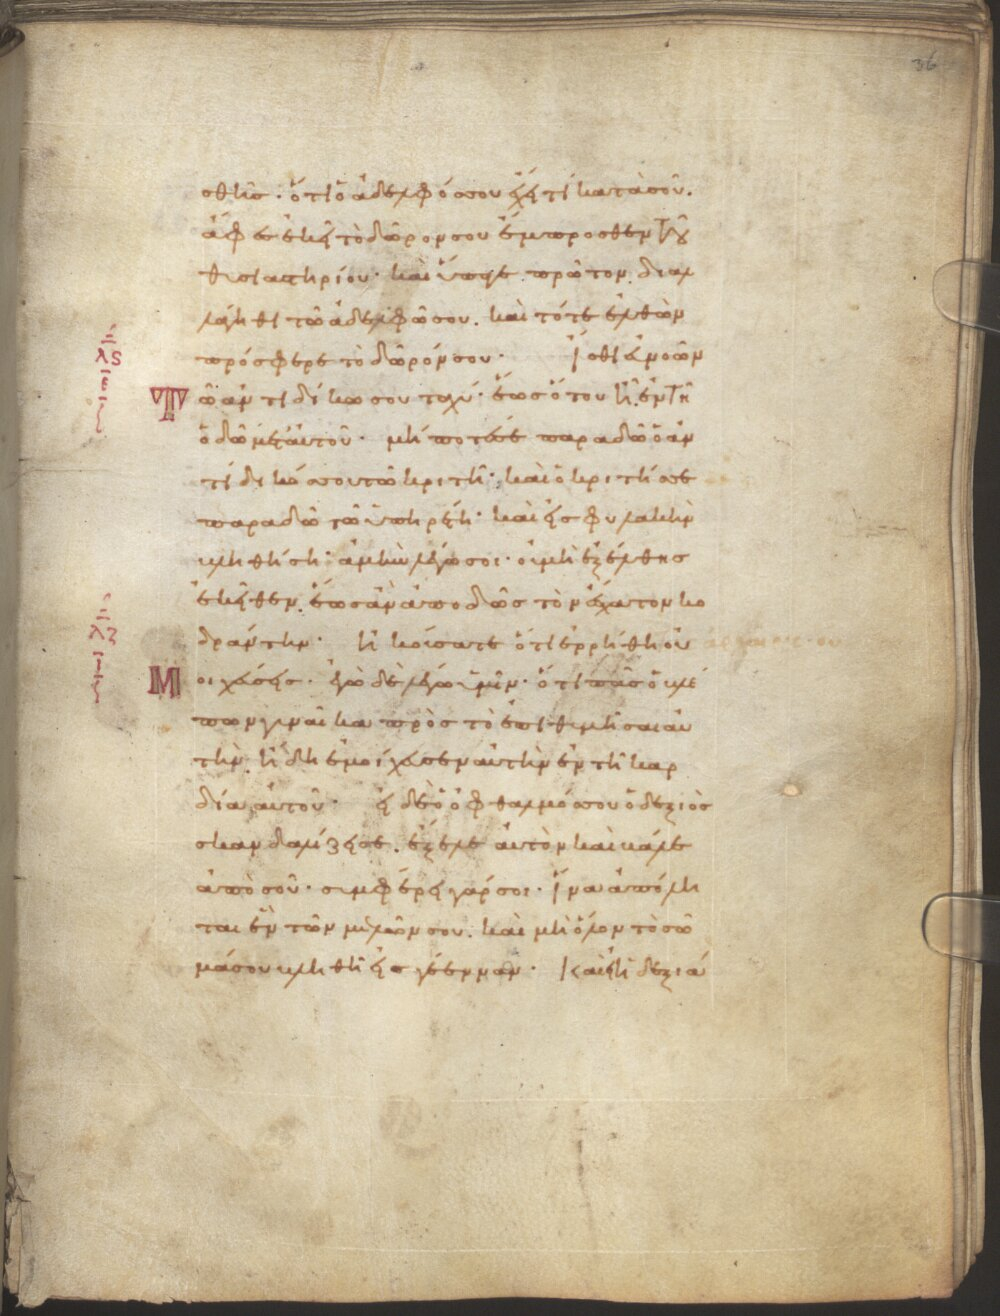 36
σθῆσ· ὅτι ὁ ἀδελφόσ σου ἔχει τί κατὰ σοῦ.
ἄφεσ ἐκεῖ τὸ δῶρον σου ἔμπροσθεν τοῦ
θυσιαστηρίου· καὶ ὕπαγε πρῶτον διαλ
λάγηθι τῶ ἀδελφῶ σου. καὶ τότε ἐλθὼν
πρόσφερε τὸ δῶρόν σου· ἴσθι ἐυνοῶν
λϛ
ε
Τ
ῶ ἀντιδίκω σου ταχύ· ἕωσ ὅτου εἶ ἐν τῆ
ὁδῶ μετ αυτοῦ· μή ποτέ σε παραδῶ ὁ ἀν
τίδικόσ σου τῶ κριτῆ· καὶ ὁ κριτήσ σε
παραδῶ τῶ ὑπηρέτη· καὶ εἰσ φυλακὴν
βληθήση· ἀμὴν λέγω σοι· οὐ μὴ ἐξέλθησ
ἐκεῖθεν. ἕωσ ἂν ἀποδῶσ τὸν ἔσχατον κο
δράντην· ἠκούσατε ὅτι ἐρρήθη οὐ
λζ
ι
Μ
οιχεύσεισ· ἐγὼ δὲ λέγω ὑμῖν· ὅτι πᾶσ ὁ βλέ
πων γυναῖκα πρὸσ τὸ ἐπιθυμῆσαι αυ
τὴν. ἤδη ἐμοίχευσεν αυτὴν ἐν τῆ καρ
δία αυτοῦ· εἰ δὲ ὁ ὀφθαλμόσ σου ὁ δεξιὸσ
σκανδαλίζει σε. ἔξελε αυτὸν καὶ βάλε
ἀπὸ σοῦ· συμφέρει γάρ σοι· ἵνα ἀπόλη
ται ἓν τῶν μελῶν σου. καὶ μὴ ὅλον τὸ σῶ
μά σου βληθῆ εἰσ γέενναν· Καὶ εἰ ἡ δεξιά